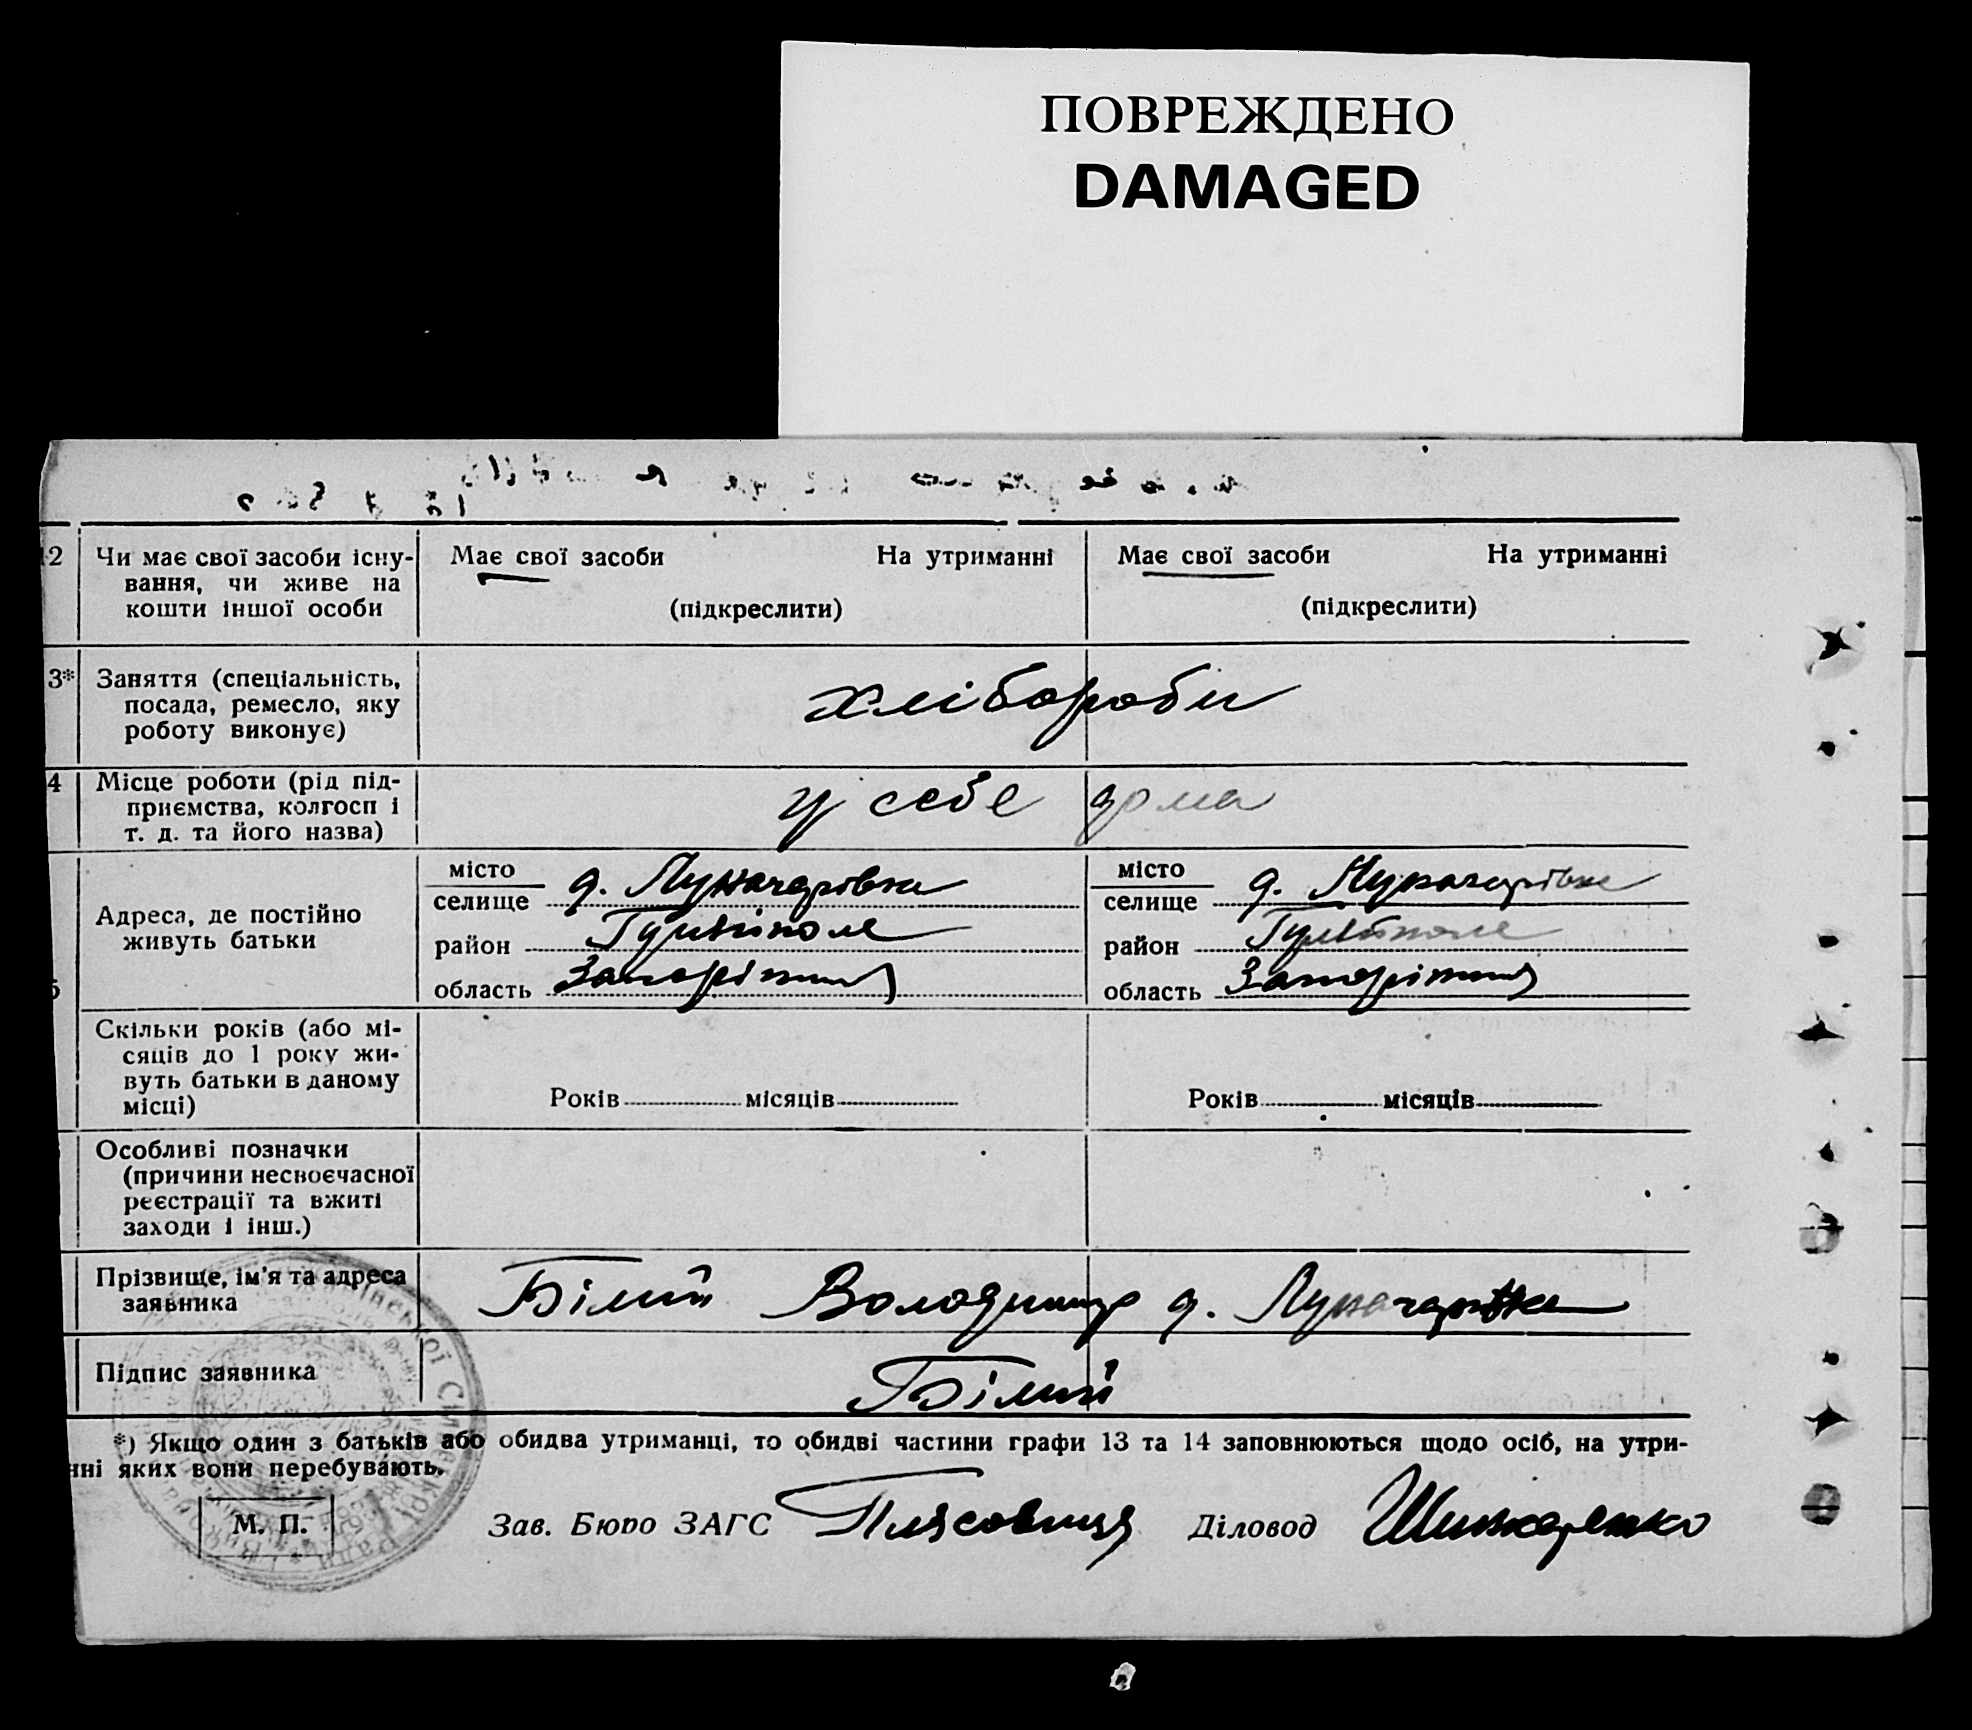 ПОВРЕЖДЕНО
DAMAGED
2 Чи має свої засоби існу-
вання, чи живе на
кошти іншої особи
Має свої засоби На утриманні
(підкреслити)
Має свої засоби На утриманні
(підкреслити)
3* Заняття (спеціальність,
посада, ремесло, яку
роботу виконує)
хлібороби
4 Місце роботи (рід під-
приємства, колгосп і
т. д. та його назва)
у себе дома
Адреса, де постійно
живуть батьки
місто
селище д. Луначарівка
район Гуляйполе
область Запоріжжя
місто
селище д. Луначарівка
район Гуляйполе
область Запоріжжя
Скільки років (або мі-
сяців до 1 року жи-
вуть батьки в даному
місці)
Років місяців
Років місяців
Особливі позначки
(причини несвоєчасної
реєстрації та вжиті
заходи і інш.)
Прізвище, ім'я та адреса
заявника
Білий Володимир д. Луначарівка
Підпис заявника
Білий
*) Якщо один з батьків або обидва утриманці, то обидві частини графи 13 та 14 заповнюються щодо осіб, на утри-
нні яких вони перебувають.
М. П.
Зав. Бюро ЗАГС Плясовиця Діловод Шинкаренко